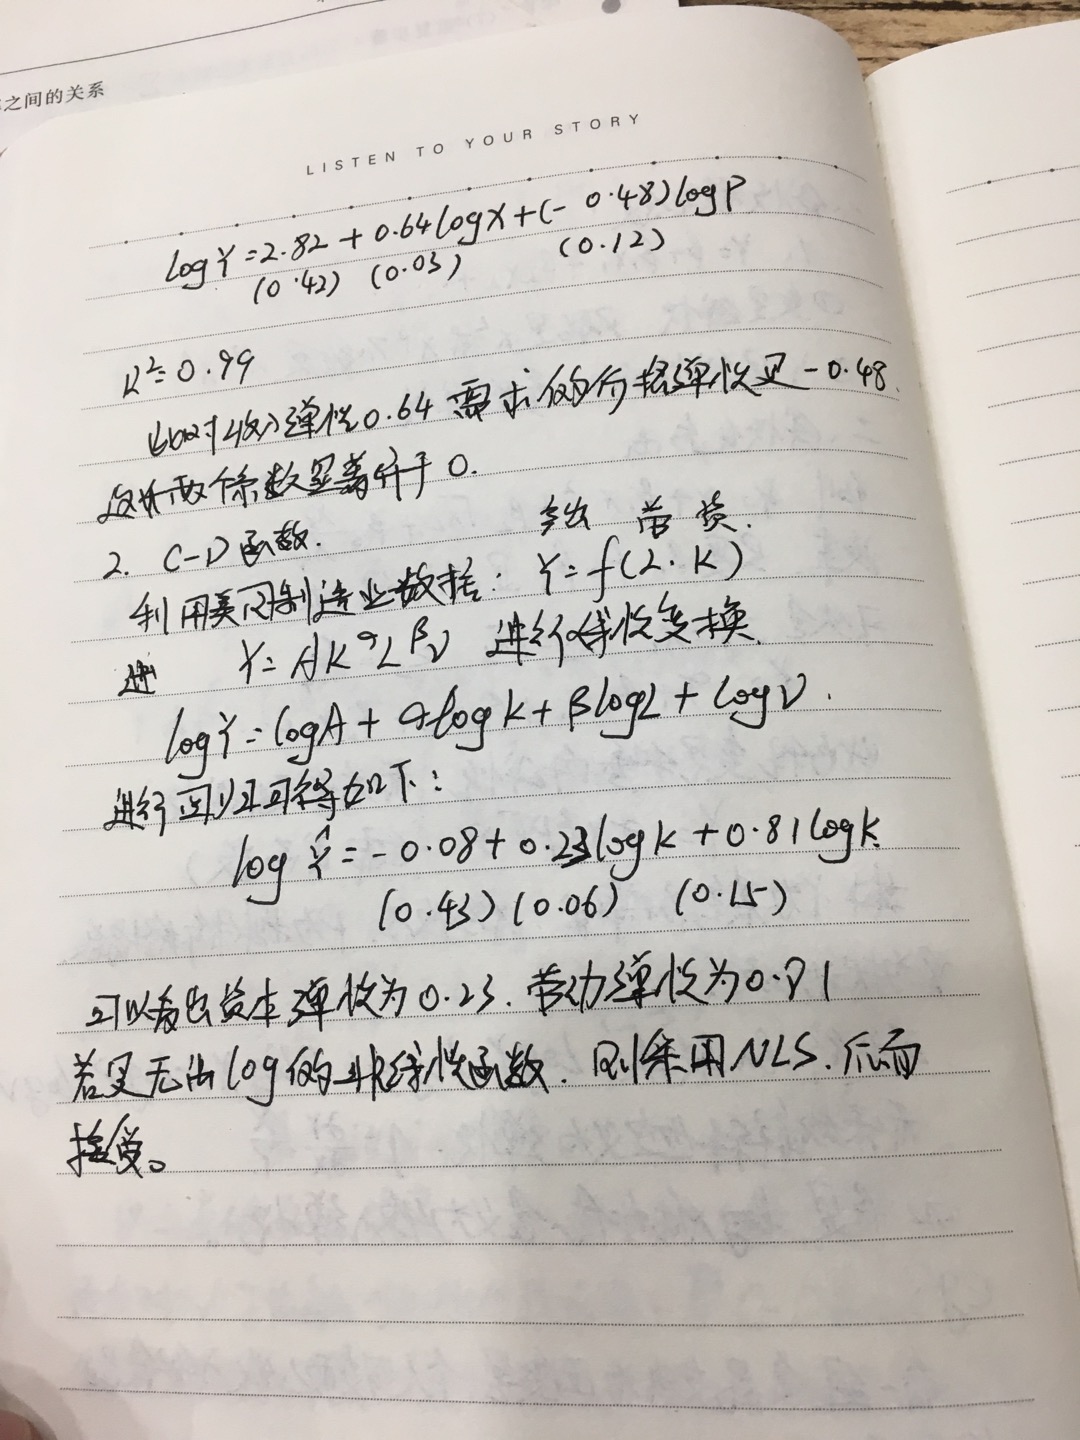 之间的关系
LISTEN TO YOUR STORY
log Ŷ = 2.82 + 0.64 log X + (- 0.48) log P
(0.42) (0.03) (0.12)
R² = 0.99
收入弹性 0.64 需求的价格弹性是 -0.48.
这两个系数显著异于 0.
2. C-D 函数.
产出 劳 资.
利用美国制造业数据: Y = f(L. K)
Y = AK^α L^β V 进行线性变换.
log Y = log A + α log K + β log L + log V.
进行回归可得如下:
log Ŷ = - 0.08 + 0.23 log K + 0.81 log K
(0.43) (0.06) (0.15)
可以看出资本弹性为 0.23. 劳动弹性为 0.81
若是无法 log 的非线性函数. 则采用 NLS.